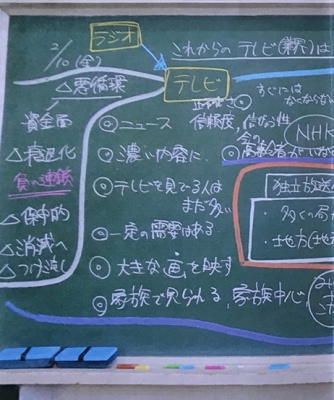 ラジオ
これからのテレビ(業界)は
2/10(金)
△悪循環
テレビ
すぐには
なくならない
正確さ
資金面
◎ニュース
信頼度、信ぴょう性
NHK
△衰退化
◎濃い内容に
負の連鎖
◎テレビを見てる人は
まだ多い
独立放送
△保守的
◎一定の需要はある
・多くの局
△消滅へ
◎大きな画を映す
・地方(地
△つけ流し
◎家族で見られる、家族中心